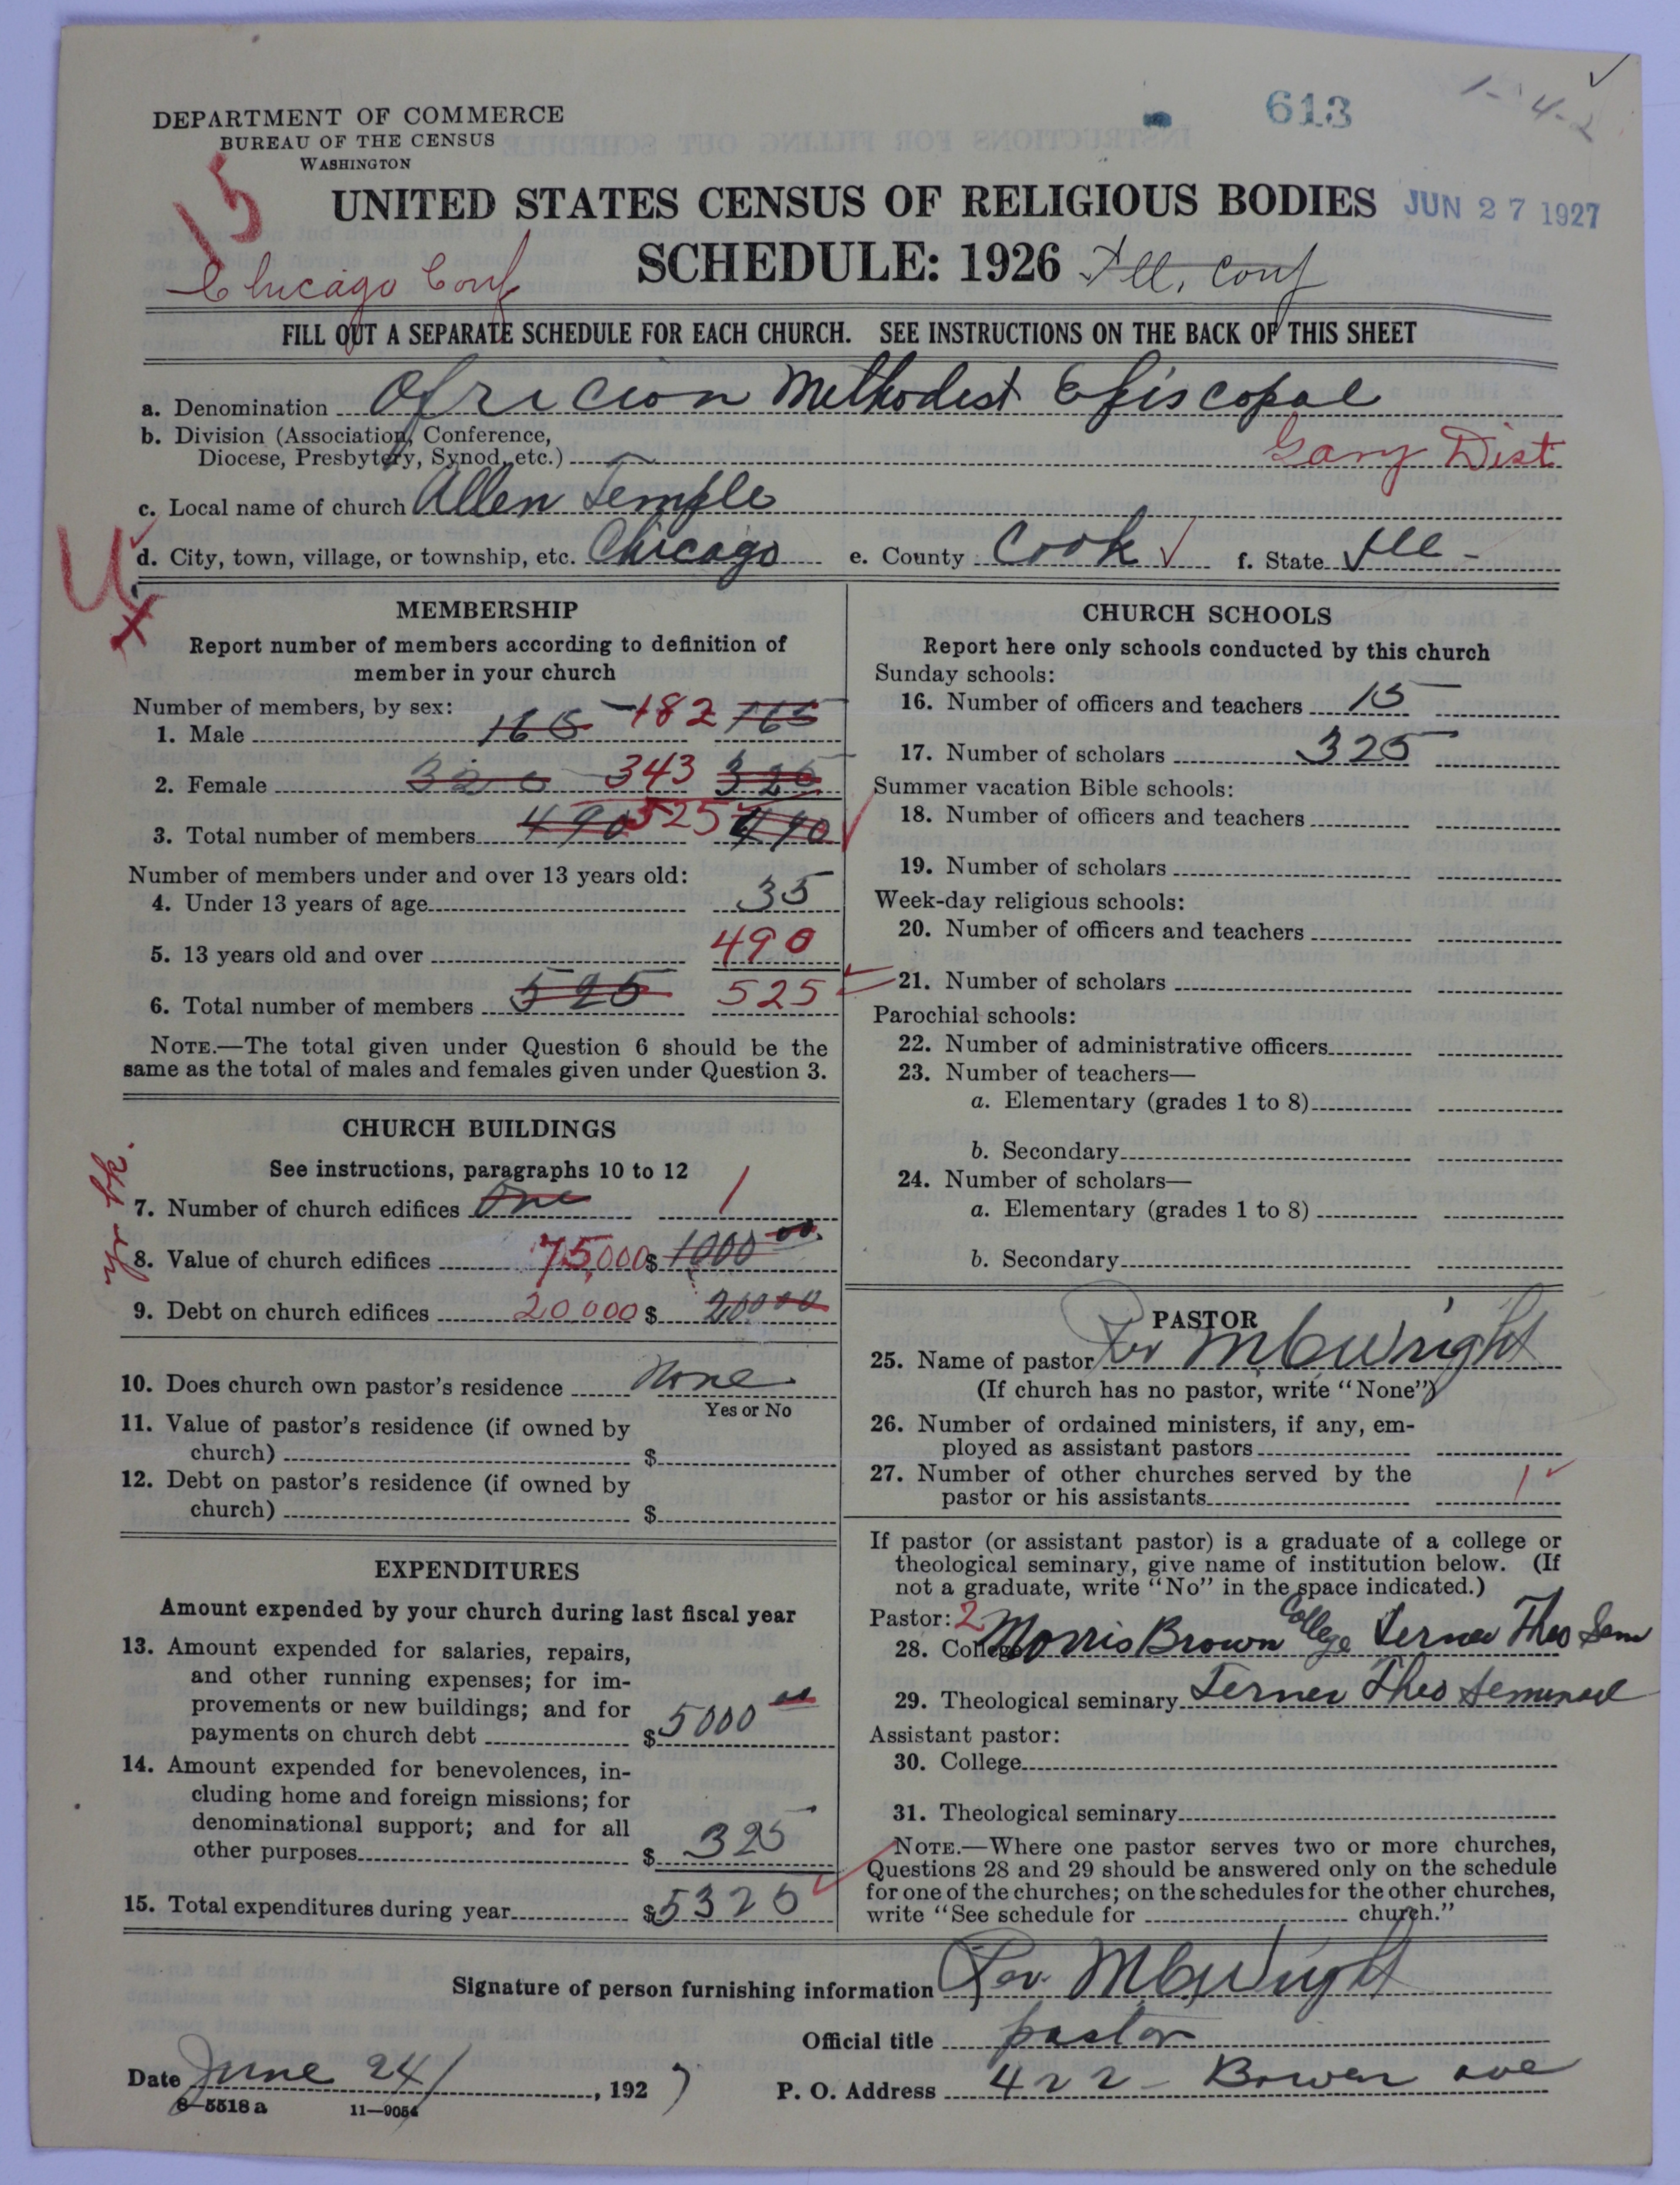 DEPARTMENT OF COMMERCE
BUREAU OF THE CENSUS
WASHINGTON
613
1-4-2
15
UNITED STATES CENSUS OF RELIGIOUS BODIES
JUN 27 1927
Chicago Conf
SCHEDULE: 1926
Ill. Conf
FILL OUT A SEPARATE SCHEDULE FOR EACH CHURCH. SEE INSTRUCTIONS ON THE BACK OF THIS SHEET
a. Denomination African Methodist Episcopal
b. Division (Association, Conference,
Diocese, Presbytery, Synod, etc.) Gary Dist
c. Local name of church Allen Temple
U
d. City, town, village, or township, etc. Chicago e. County Cook f. State Ill-
X
MEMBERSHIP
Report number of members according to definition of
member in your church
Number of members, by sex:
1. Male 165 182 165
2. Female 320 343 325
3. Total number of members 490 525 490
Number of members under and over 13 years old:
4. Under 13 years of age 35
5. 13 years old and over 490
6. Total number of members 525 525
NOTE.—The total given under Question 6 should be the
same as the total of males and females given under Question 3.
CHURCH BUILDINGS
See instructions, paragraphs 10 to 12
7. Number of church edifices One 1
yr bk.
8. Value of church edifices 75,000 $ 1000 00
9. Debt on church edifices 20,000 $ 20000
10. Does church own pastor's residence None
Yes or No
11. Value of pastor's residence (if owned by
church) $
12. Debt on pastor's residence (if owned by
church) $
EXPENDITURES
Amount expended by your church during last fiscal year
13. Amount expended for salaries, repairs,
and other running expenses; for im-
provements or new buildings; and for
payments on church debt $5000 00
14. Amount expended for benevolences, in-
cluding home and foreign missions; for
denominational support; and for all
other purposes $ 325
15. Total expenditures during year $5325
CHURCH SCHOOLS
Report here only schools conducted by this church
Sunday schools:
16. Number of officers and teachers 15
17. Number of scholars 325
Summer vacation Bible schools:
18. Number of officers and teachers
19. Number of scholars
Week-day religious schools:
20. Number of officers and teachers
21. Number of scholars
Parochial schools:
22. Number of administrative officers
23. Number of teachers—
a. Elementary (grades 1 to 8)
b. Secondary
24. Number of scholars—
a. Elementary (grades 1 to 8)
b. Secondary
PASTOR
25. Name of pastor Rev M C Wright
(If church has no pastor, write "None")
26. Number of ordained ministers, if any, em-
ployed as assistant pastors
27. Number of other churches served by the
pastor or his assistants 1
If pastor (or assistant pastor) is a graduate of a college or
theological seminary, give name of institution below. (If
not a graduate, write "No" in the space indicated.)
Pastor: 2
28. College Morris Brown College Terner Theo Sem
29. Theological seminary Terner Theo
Assistant pastor:
30. College
31. Theological seminary
NOTE.—Where one pastor serves two or more churches,
Questions 28 and 29 should be answered only on the schedule
for one of the churches; on the schedules for the other churches,
write "See schedule for church."
Signature of person furnishing information Rev. M C Wright
Official title pastor
Date June 24, 1927 P. O. Address 422 Bowen ave
8—5518 a 11—9054